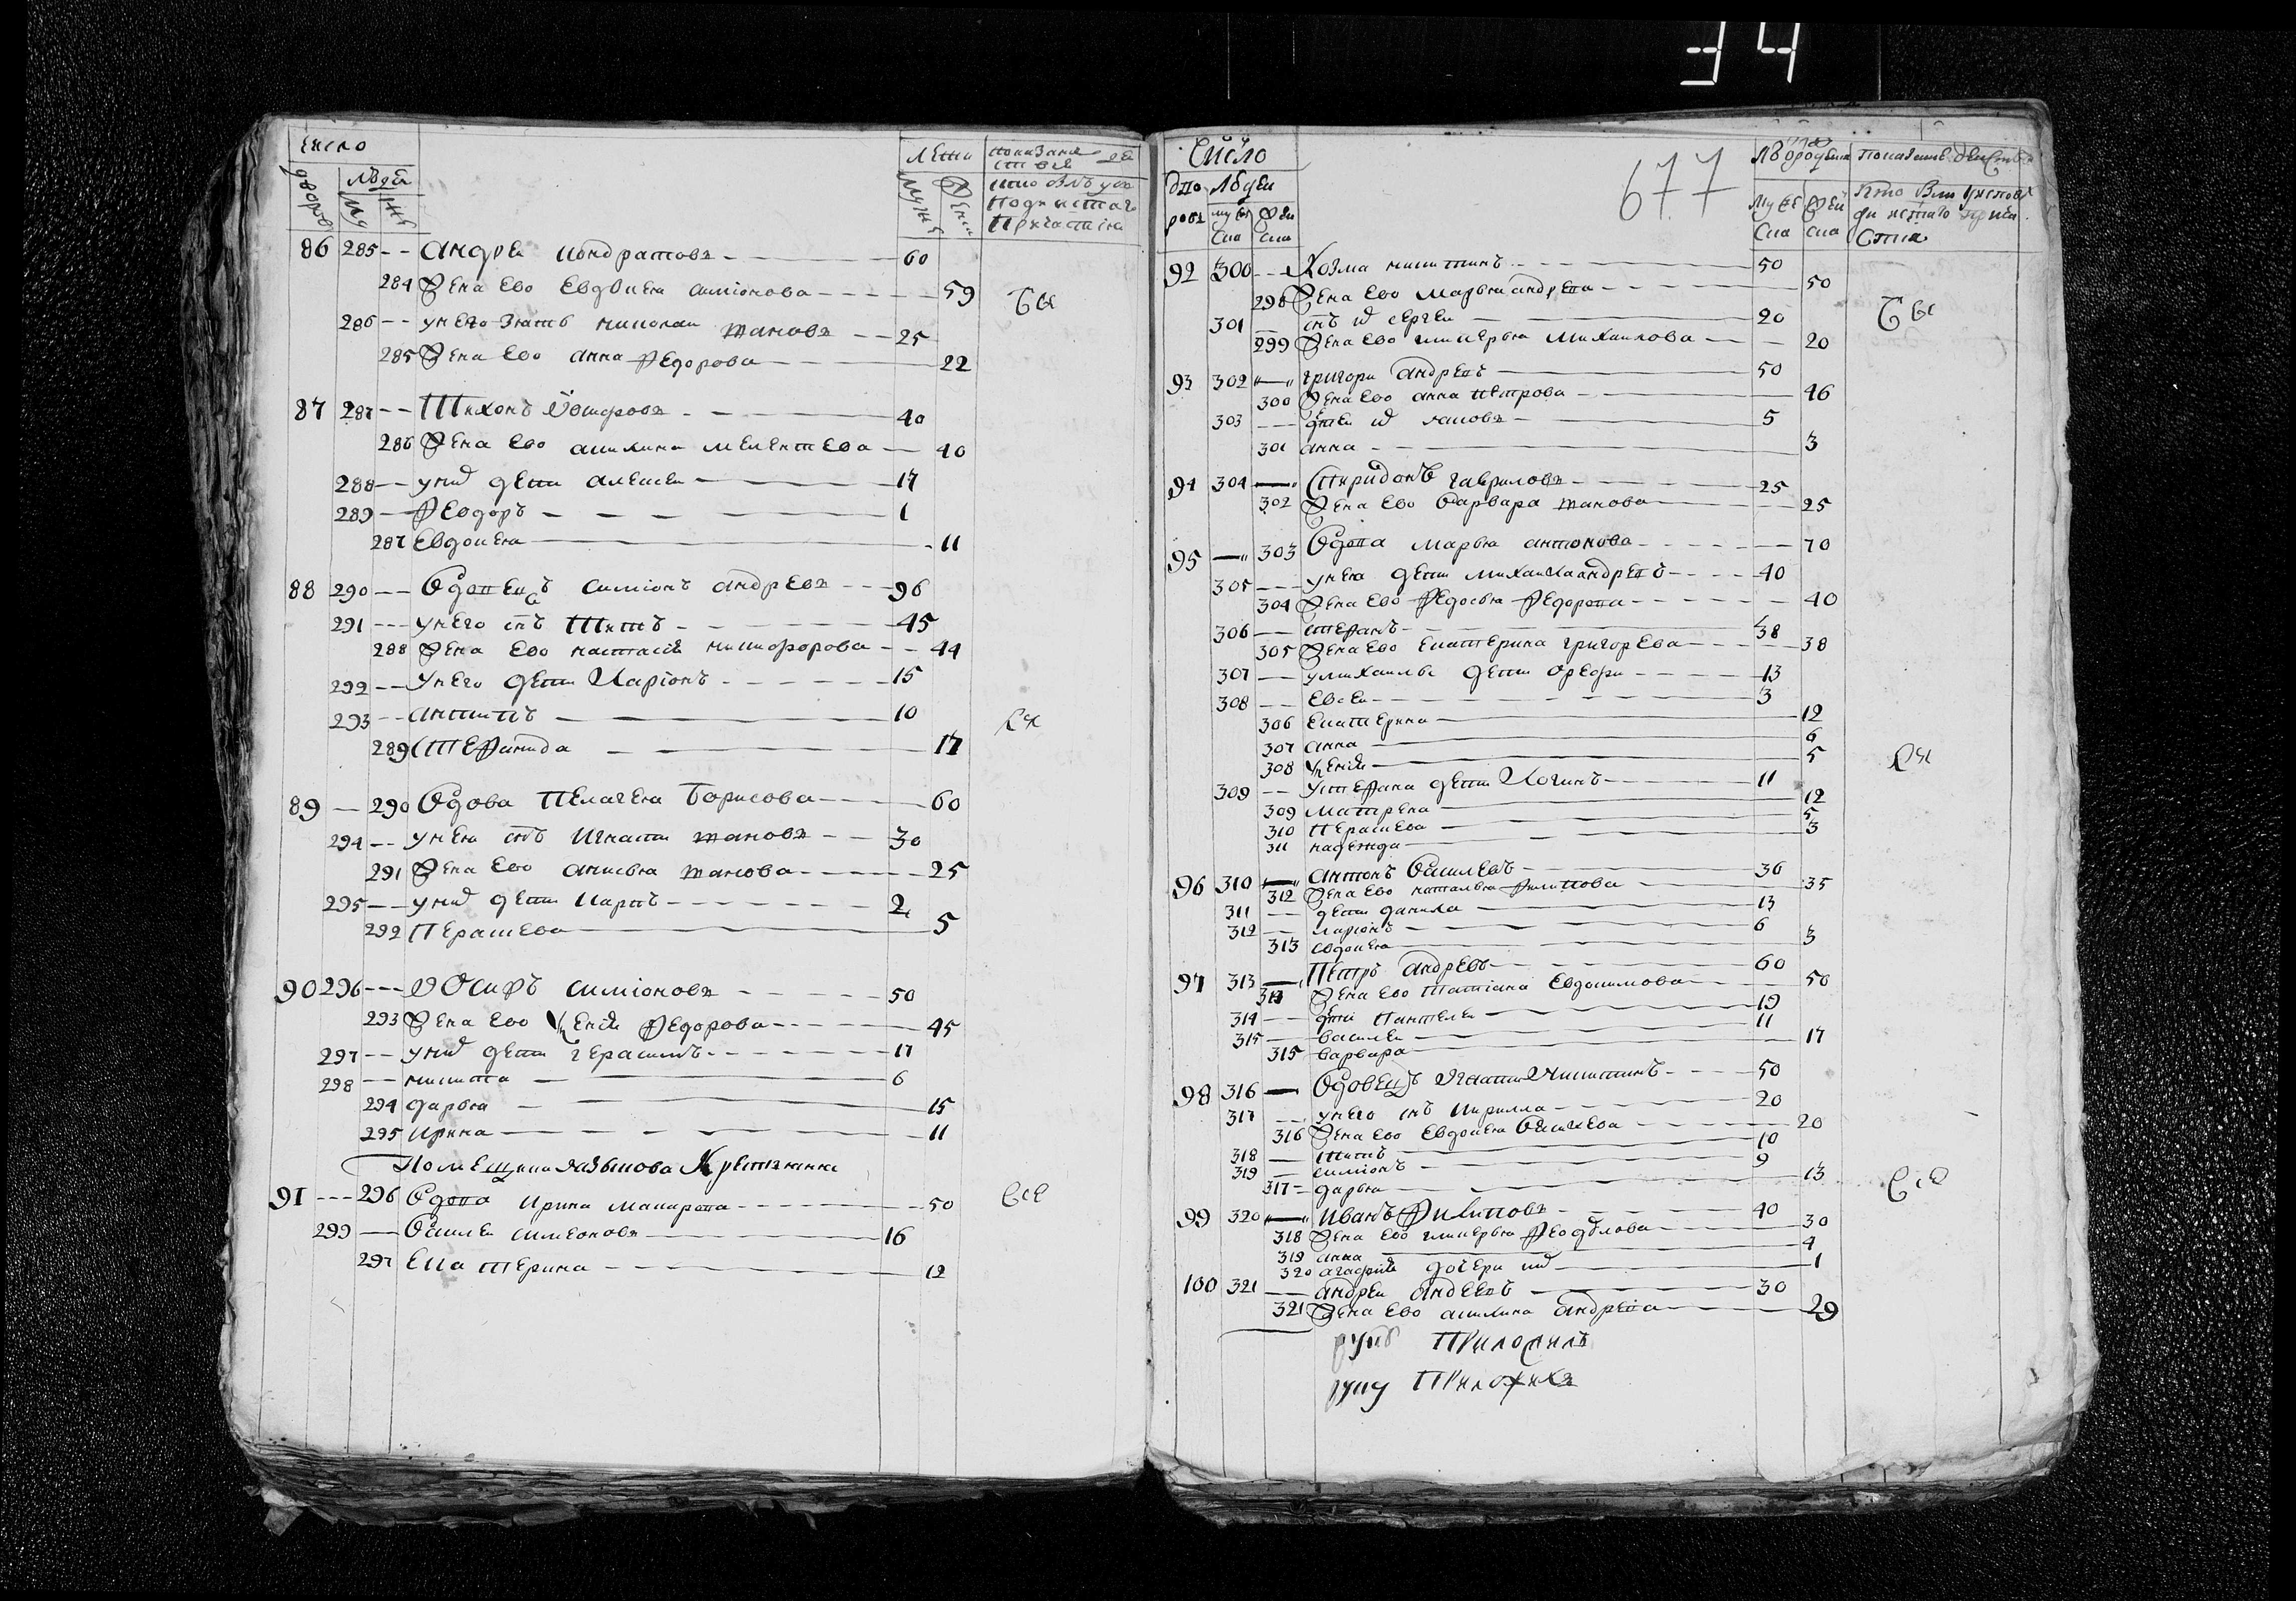 34
число
дворовъ
людей
му
же
лета
муже
жен
показание действ
кто былъ у исповеди и святаго причастия
86 285 -- андрей кондратовъ 60
284 жена ево евдокея симионова 59
бы
286 -- у него зять николай яковлевъ 25
285 жена ево анна федорова 22
87 287 -- Тихонъ 40
286 жена ево акилина мелентева 40
288 -- у них дети алексей 17
289 -- феодоръ 1
287 евдокея 11
88 290 -- вдовецъ симионъ андревъ 96
291 --- у него снъ титъ 45
288 жена ево настасия никифорова 44
292 -- у него дети ларионъ 15
293 -- антипъ 10
ли
289 степанида 17
89 -- 290 вдова пелагея борисова 60
294 -- у нея снъ игнати 30
291 жена ево анисья 25
295 -- у них дети карпъ 2
292 перасковя 5
90 296 --- иосифъ симионовъ 50
293 жена ево ксения федорова 45
297 -- у них дети герасимъ 17
298 -- никита 6
294 дарья 15
295 ирина 11
помещика языкова крестянка
91 --- 296 вдова ирина макарова 50
все
299 -- василей симеоновъ 16
297 екатерина 12
677
Число
дворовъ
людей
мужеска
женска
мужеска
женска
показание действа
кто были у исповеди и святаго причастия
92 300 -- козма никитинъ 50
298 жена ево марья андрева 50
бы
301 -- снъ их сергей 20
299 жена ево гликерья михаилова 20
93 302 -- григори андревъ 50
300 жена ево анна петрова 46
303 --- дети их яковъ 5
301 анна 3
94 304 -- спиридонъ гавриловъ 25
302 жена ево варвара 25
95 -- 303 вдова марья антонова 70
305 --- у нея дети михаила андревъ 40
304 жена ево федосья федорова 40
306 -- стефанъ 38
305 жена ево екатерина григорева 38
307 -- у михаилы дети ерефи 13
308 -- евсеи 3
306 екатерина 12
307 анна 6
308 ксения 5
ли
309 -- у стефана дети логинъ 11
309 матрена 12
310 перасковя 5
311 надежда 3
96 310 -- антонъ василевъ 36
312 жена ево наталья филипова 35
311 -- дети данила 13
312 -- ларионъ 6
313 евдокея 3
97 313 -- петръ андревъ 60
314 жена ево татиана евдокимова 50
314 -- дети пантелеи 19
315 -- василеи 11
315 варвара 17
98 316 -- вдовецъ игнати никитинъ 50
317 -- у него снъ кирилла 20
316 жена ево евдокея василева 20
318 -- титъ 10
319 -- симионъ 9
317 - дарья 13
все
99 320 -- иванъ филиповъ 40
318 жена ево гликерья феодулова 30
319 анна 4
320 агафия дочери их 1
100 321 -- андреи андреевъ 30
321 жена ево акилина андрева 29
руку приложилъ
руку приложилъ